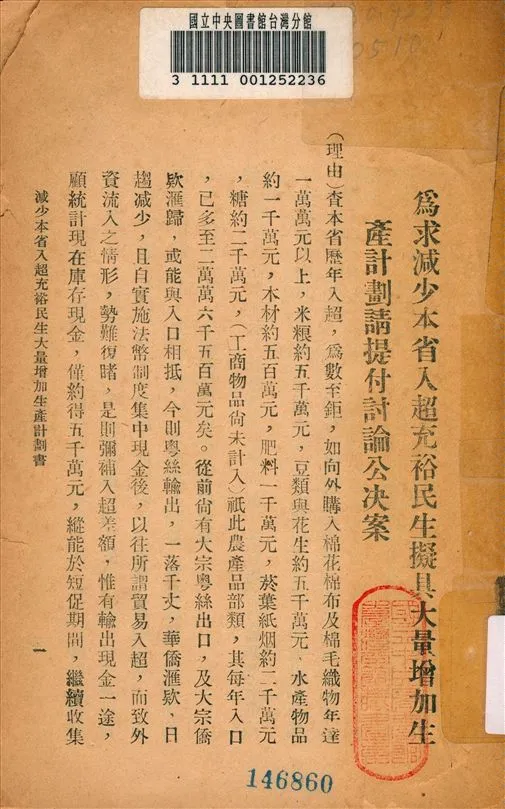 國立中央圖書館台灣分館
3 1111 001252236
為求減少本省入超充裕民生擬具大量增加生
產計劃請提付討論公决案
(理由)查本省歷年入超,爲數至鉅,如向外購入棉花棉布及棉毛織物年達
一萬萬元以上,米粮約五千萬元,豆類與花生約五千萬元、水產物品
約一千萬元,木材約五百萬元,肥料一千萬元,菸葉紙烟約二千萬元
,糖約二千萬元,(工商物品尙未計入)祇此農產品部類,其每年入口
,已多至二萬萬六千五百萬元矣。從前尙有大宗粵絲出口,及大宗僑
欵滙歸,或能與入口相抵,今則粵絲輸出,一落千丈,華僑滙欵,日
趨減少,且自實施法幣制度集中現金後,以往所謂貿易入超,而致外
資流入之情形,勢難復睹,是則彌補入超差額,惟有輸出現金一途,
顧統計現在庫存現金,僅約得五千萬元,縱能於短促期間,繼續收集
減少本省入超充裕民生大量增加生產計劃書
一
146860